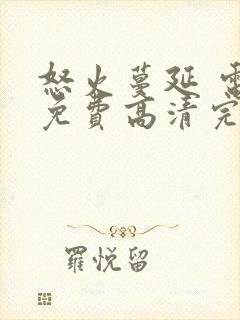 怒火蔓延 電
免費高清完
羅悅留